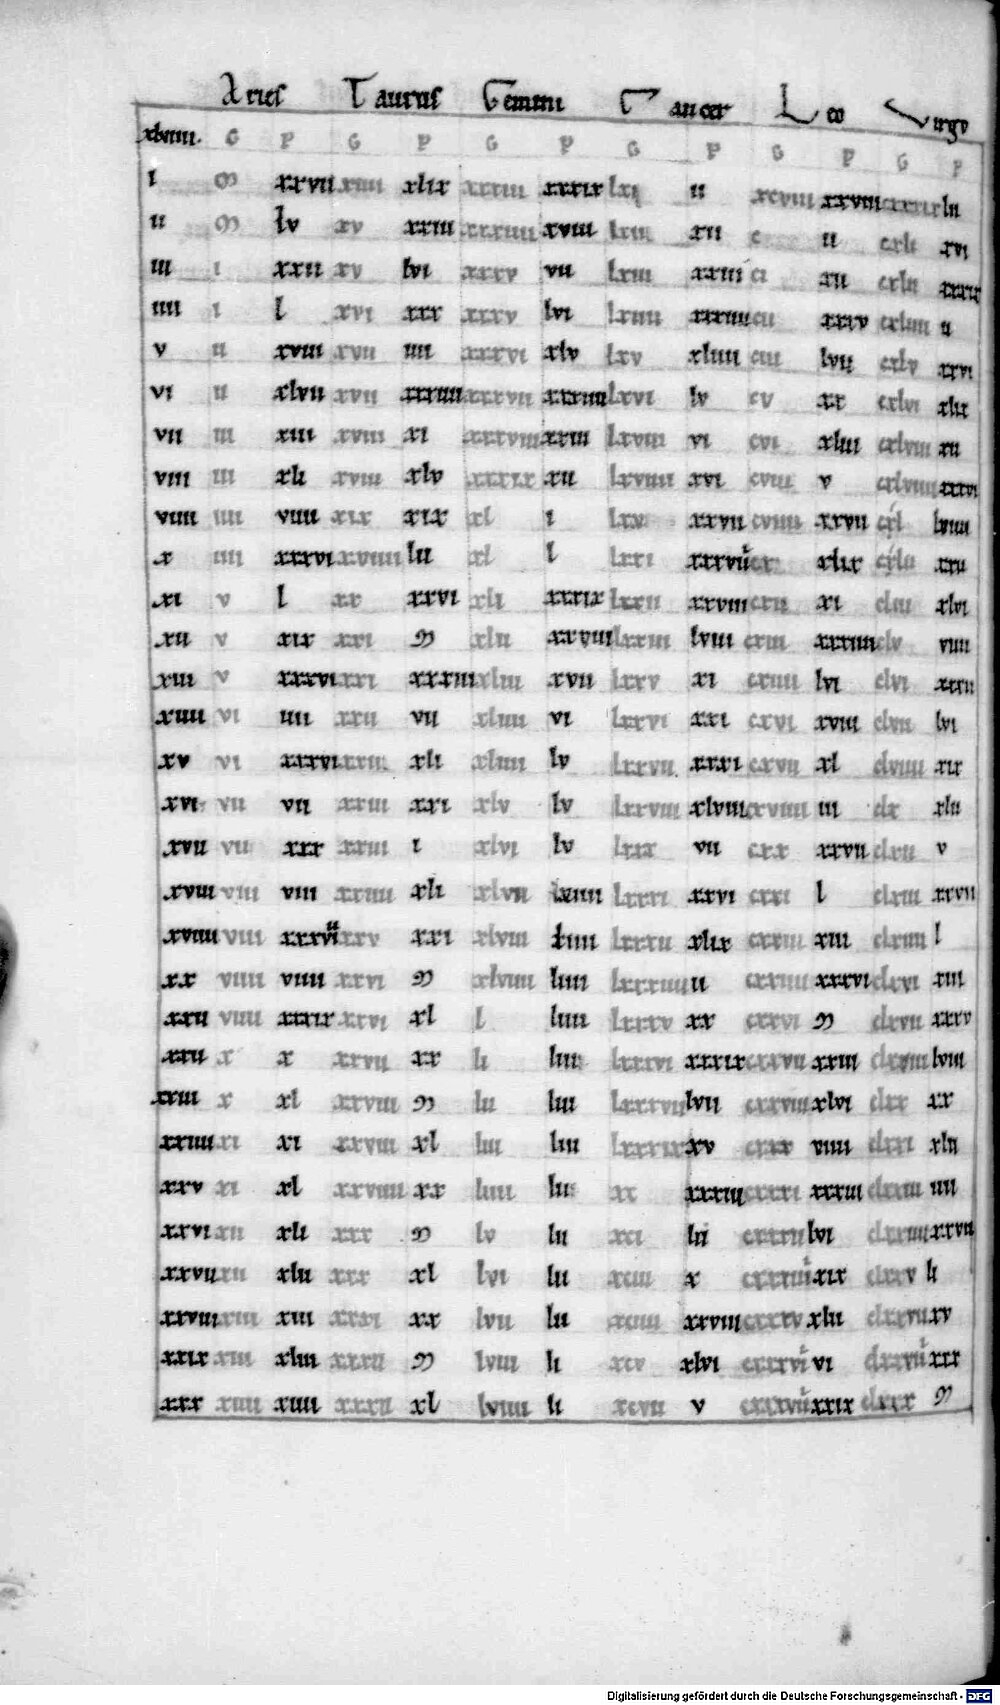 Aries Taurus Gemini Cancer Leo Virgo
xlviii. G P G P G P G P G P G P
i xxvii xiiii xlix xxxiii xxxix lxii ii xcviiii xxviii lii
ii lv xv xxiii xxxiiii xviii lxiii xii c ii cxli xvi
iii i xxii xv lvi xxxv vii lxiii xxiii ci xii cxlii xxxix
iiii i l xvi xxx xxxv lvi lxiiii xxxiiii cii xxxv cxliiii ii
v ii xviii xvii iiii xxxvi xlv lxv xliiii ciii lvii cxlv xxvi
vi ii xlvii xvii xxxiiii xxxvii xxxiiii lxvi lv cv xx cxlvi xlix
vii iii xiii xviii xi xxxviii xxiii lxviii vi cvi xliii cxlviii xii
viii iii xli xviii xlv xxxix xii lxviiii xvi cviii v cxlviiii xxxvi
viiii iiii viiii xix xix xl i lxx xxvii cviiii xxvii cxl lviiii
x iiii xxxvi xviiii lii xl l lxxi xxxvii cx xlix cxlii xxii
xi v l xx xxvi xli xxxix lxxii xxviiii cxii xi cliii xlvi
xii v xix xxi xlii xxviii lxxiii lviii cxiii xxxiiii clv viiii
xiii v xxxvi xxi xxxiii xliii xvii lxxv xi cxiiii lvi clvi xxxii
xiiii vi iiii xxii vii xliiii vi lxxvi xxi cxvi xviii clvii lvi
xv vi xxxvi xxiii xli xliiii lv lxxvii xxxi cxvii xl clviiii xix
xvi vii vii xxiii xxi xlv lv lxxviii xlviii cxviiii iii clx xlii
xvii vii xxx xxiii i xlvi lv lxxx vii cxx xxvii clxii v
xviii viii viii xxiiii xli xlvii liiii lxxxi xxvi cxxi l clxiii xxvii
xviiii viii xxxvii xxv xxi xlviii liiii lxxxii xlix cxxiii xiii clxiiii l
xx viiii viiii xxvi xlviiii liiii lxxxiiii ii cxxiiii xxxvi clxvi xiii
xxii viiii xxxix xxvi xl l liiii lxxxv xx cxxvi clxvii xxxv
xxii x x xxvii xx li liii lxxxvi xxxix cxxvii xxiii clxviii lviii
xxiii x xl xxviii lii liii lxxxvii lvii cxxviii xlvi clxx xx
xxiiii xi xi xxviii xl liii liii lxxxix xv cxxx viiii clxxi xlii
xxv xi xl xxviiii xx liiii lii xc xxxiii cxxxi xxxiii clxxiii iiii
xxvi xii xli xxx lv lii xci lii cxxxii lvi clxxiiii xxvii
xxvii xii xlii xxx xl lvi lii xciii x cxxxiiii xix clxxv li
xxviii xiii xiii xxxi xx lvii lii xciiii xxviii cxxxv xlii clxxvii xv
xxix xiii xliii xxxii lviii li xcv xlvi cxxxvii vi clxxviii xxx
xxx xiiii xiiii xxxii xl lviiii li xcvii v cxxxviii xxix clxxx
Digitalisierung gefördert durch die Deutsche Forschungsgemeinschaft - DFG